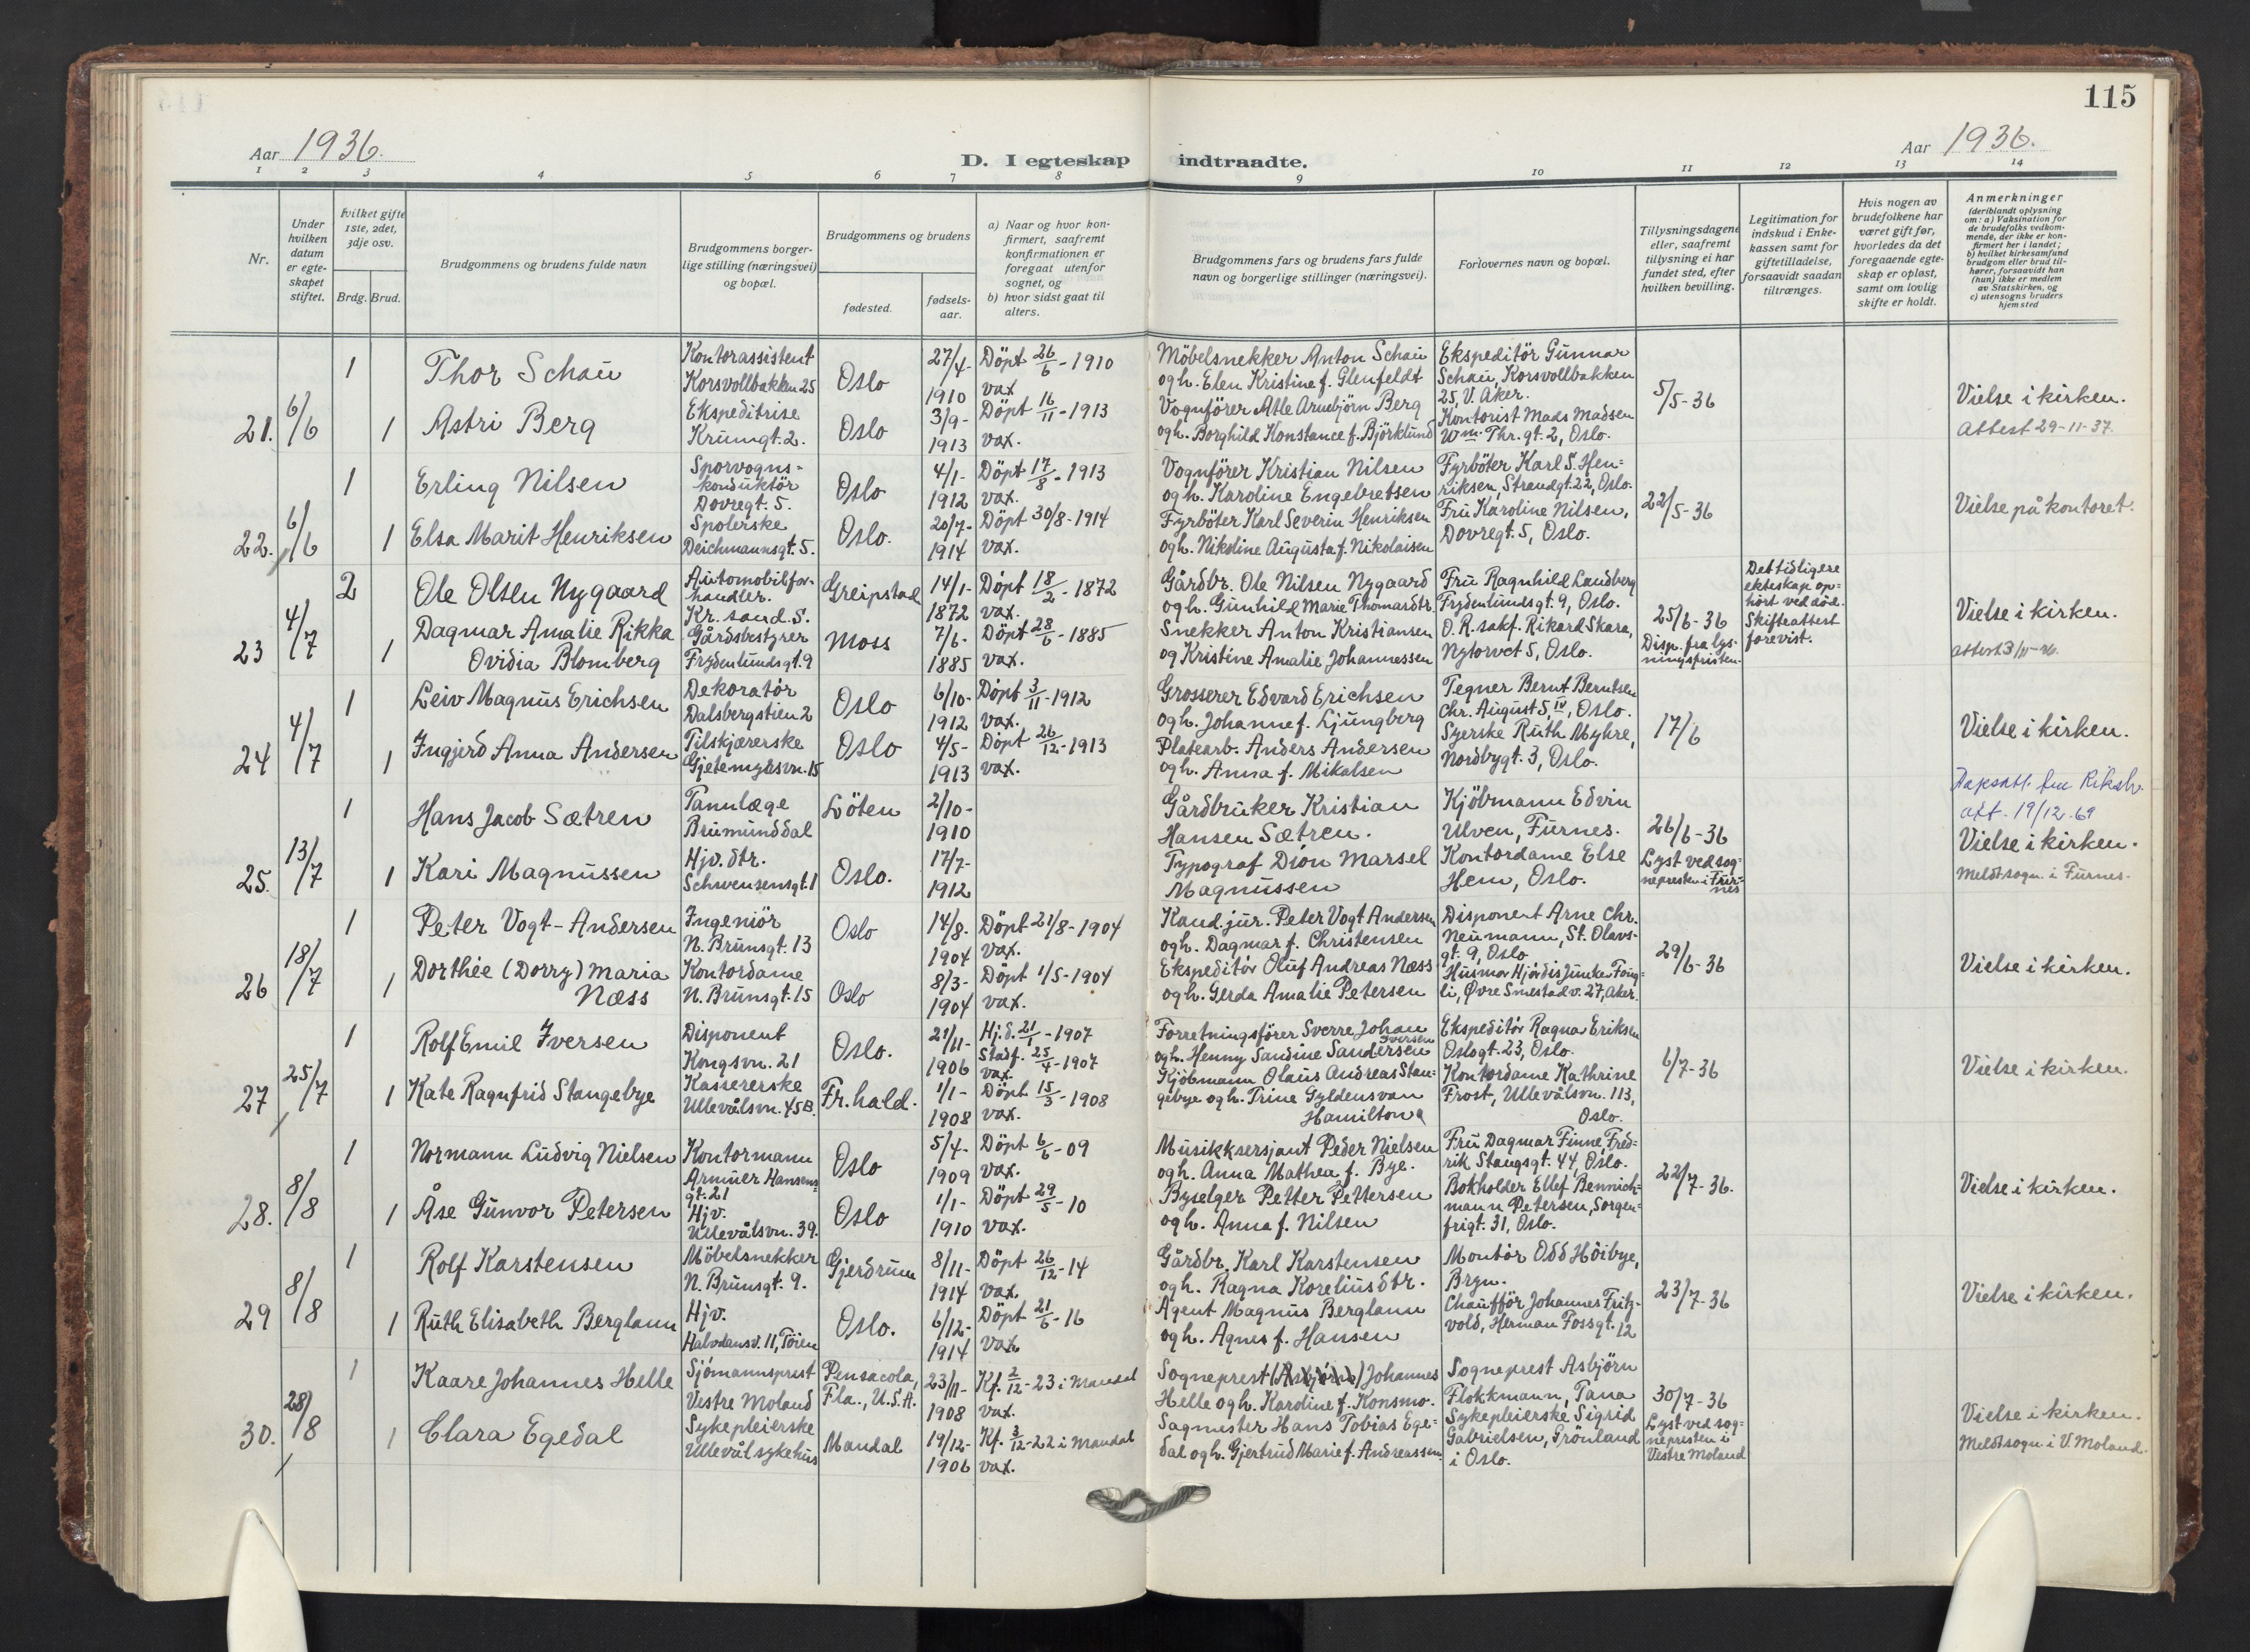 115
Aar 1936.
D. I egteskap indtraadte.
Aar 1936.
1 2 3 4 5 6 7 8 9 10 11 12 13 14
Nr.
Under hvilken datum er egteskapet stiftet.
hvilket gifte 1ste, 2det, 3dje osv.
Brdg. Brud.
Brudgommens og brudens fulde navn
Brudgommens borgerlige stilling (næringsvei) og bopæl.
Brudgommens og brudens
fødested.
fødselsaar.
a) Naar og hvor konfirmert, saafremt konfirmationen er foregaat utenfor sognet, og
b) hvor sidst gaat til alters.
Brudgommens fars og brudens fars fulde navn og borgerlige stillinger (næringsvei).
Forlovernes navn og bopæl.
Tillysningsdagene eller, saafremt tillysning ei har fundet sted, efter hvilken bevilling.
Legitimation for indskud i Enkekassen samt for giftetilladelse, forsaavidt saadan tiltrænges.
Hvis nogen av brudefolkene har været gift før, hvorledes da det foregaaende egteskap er opløst, samt om lovlig skifte er holdt.
Anmerkninger (deriblandt oplysning om: a) Vaksination for de brudefolks vedkommende, der ikke er konfirmert her i landet; b) hvilket kirkesamfund brudgom eller brud tilhører, forsaavidt han (hun) ikke er medlem av Statskirken, og c) utensogns bruders hjemsted
21. 6/6
1 Thor Schau
Kontorassistent Korsvollbakken 25
Oslo
27/4-1910
Döpt 26/6-1910 vax
Möbelsnekker Anton Schau ogh. Elen Kristine f. Glenfeldt
Ekspeditör Gunnar Schau, Korsvollbakken 25, V. Aker.
5/5-36
Vielse i kirken.
Attest 29-11-37.
1 Astri Berg
Ekspeditrise Krumgt. 2.
Oslo
3/9-1913
Döpt 16/11-1913 vax.
Vognförer Atle Arnebjörn Berg ogh. Borghild Konstance f. Björklund
Kontorist Mads Madsen Wm. Thr. gt. 2, Oslo.
22. 6/6
1 Erling Nilsen
Sporvognskonduktör Dovregt. 5.
Oslo
4/1-1912
Döpt 17/8-1913 vax.
Vognförer Kristian Nilsen ogh. Karoline Engebretsen
Fyrböter Karl S. Henriksen, Strandgt. 22, Oslo.
22/5-36
Vielse på kontoret.
1 Elsa Marit Henriksen
Spolerske Deichmannsgt. 5.
Oslo.
20/7-1914
Döpt 30/8-1914 vax.
Fyrböter Karl Severin Henriksen ogh. Nikoline Augusta f. Nikolaisen
Fru Karoline Nilsen, Dovregt. 5, Oslo.
23 4/7
2 Ole Olsen Nygaard
Automobilforhandler. Kr. sand. S.
Greipstad
14/1-1872
Döpt 18/2-1872 vax.
Gårdbr. Ole Nilsen Nygaard ogh. Gunhild Marie Thomasdtr.
Fru Ragnhild Landberg Frydenlundsgt. 9, Oslo.
25/6-36 Disp. fra lysningsfristen.
Det tidligere ekteskap ophört ved död. Skifteattest forevist.
Vielse i kirken.
1 Dagmar Amalie Rikka Ovidia Blomberg
Gårdsbestyrer Frydenlundsgt. 9
Moss
7/6-1885
Döpt 28/6-1885 vax.
Snekker Anton Kristiansen og Kristine Amalie Johannessen
O. R. sakf. Rikard Skara, Nytorvet 5, Oslo.
24 4/7
1 Leiv Magnus Erichsen
Dekoratör Dalsbergstien 2
Oslo
6/10-1912
Döpt 3/11-1912 vax.
Grosserer Edvard Erichsen ogh. Johanne f. Ljungberg
Tegner Bernt Berntsen Chr. August 5, IV, Oslo.
17/6
Vielse i kirken.
1 Ingjerd Anna Andersen
Tilskjærerske Gjetemyrsvn. 15
Oslo
4/5-1913
Döpt 26/12-1913 vax.
Platearb. Anders Andersen ogh. Anna f. Mikalsen
Syerske Ruth Myhre, Nordbygt. 3, Oslo.
25. 13/7
1 Hans Jacob Sætren
Tannlæge Brumunddal
Löten
2/10-1910
Gårdbruker Kristian Hansen Sætren.
Kjöbmann Edvin Ulven, Furnes.
26/6-36 Lyst ved sognepresten i Furnes
att. 19/12.69
Vielse i kirken.
Meldt sogn. i Furnes.
1 Kari Magnussen
Hjv. dtr. Schwensensgt. 1
Oslo.
17/7-1912
Typograf Dion Marsel Magnussen
Kontordame Else Hem, Oslo.
26 18/7
1 Peter Vogt-Andersen
Ingeniör N. Brunsgt. 13
Oslo
14/8-1904
Döpt 21/8-1904 vax.
Kand. jur. Peter Vogt Andersen ogh. Dagmar f. Christensen
Disponent Arne Chr. Neumann, St. Olavsgt. 9, Oslo
29/6-36
Vielse i kirken.
1 Dorthée (Dorry) Maria Næss
Kontordame N. Brunsgt. 15
Oslo
8/3-1904
Döpt 1/5-1904 vax.
Ekspeditör Oluf Andreas Næss ogh. Gerda Amalie Petersen
Husmor Hjördis Juncker Fougli, Øvre Smestadv. 27, Aker.
27 25/7
1 Rolf Emil Iversen
Disponent Kongsvn. 21
Oslo.
21/11-1906
Hj.d. 21/1-1907 Stadf. 25/4-1907 vax.
Forretningsförer Sverre Johan Iversen ogh. Henny Sandine Sandersen
Ekspeditör Ragna Eriksen Oslogt. 23, Oslo.
6/7-36
Vielse i kirken.
1 Kate Ragnfrid Stangebye
Kassererske Ullevålsvn. 45B.
Fr.hald.
1/1-1908
Döpt 15/3-1908 vax.
Kjöbmann Olaus Andreas Stangebye ogh. Trine Gyldensvan Hamilton
Kontordame Kathrine Frost, Ullevålsvn. 113, Oslo.
28. 8/8
1 Normann Ludvig Nielsen
Kontormann Armuer Hansensgt. 21
Oslo
5/4-1909
Döpt 6/6-09 vax.
Musikksersjant Peder Nielsen ogh. Anna Mathea f. Bye.
Fru Dagmar Finne, Fredrik Stangsgt. 44, Oslo.
22/7-36.
Vielse i kirken.
1 Åse Gunvor Petersen
Hjv. Ullevålsvn. 39.
Oslo
1/1-1910
Döpt 29/5-10 vax.
Byselger Petter Pettersen ogh. Anna f. Nilsen
Bokholder Ellef Bennichmann Petersen, Sorgenfrigt. 31, Oslo.
29 8/8
1 Rolf Karstensen
Möbelsnekker N. Brunsgt. 9.
Gjerdrum
8/11-1914
Döpt 26/12-14 vax.
Gårdbr. Karl Karstensen ogh. Ragna Koreliusdtr.
Montör Odd Höibye, Bryn.
23/7-36
Vielse i kirken.
1 Ruth Elisabeth Berglann
Hjv. Halvdansv. 11, Töien
Oslo.
6/12-1914
Döpt 21/6-16 vax
Agent Magnus Berglann ogh. Agnes f. Hansen
Chaufför Johannes Fritzvold, Herman Fossgt. 12
30. 28/8
1 Kaare Johannes Helle
Sjömannsprest Vestre Moland
Pensacola, Fla., U.S.A.
23/11-1908
Kf. 2/12-23 i Mandal vax.
Sogneprest (Asbjörn) Johannes Helle ogh. Karoline f. Konsmo.
Sogneprest Asbjörn Flokkmann, Tana
30/7-36 Lyst ved sognepresten i Vestre Moland
Vielse i kirken.
Meldt sogn. i V. Moland.
1 Clara Egedal
Sykepleierske Ullevål sykehus
Mandal
19/12-1906
Kf. 3/12-22 i Mandal vax.
Sagmester Hans Tobias Egedal ogh. Gjertrud Marie f. Andreassen.
Sykepleierske Sigrid Gabrielsen, Grönland i Oslo.